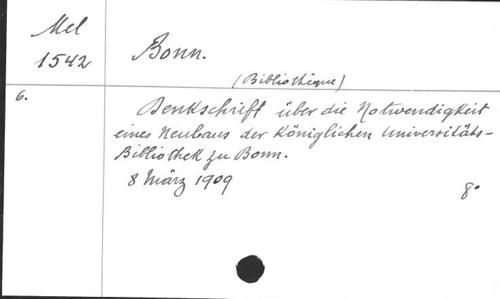 Mel
1542
Bonn.
(Bibliothèque)
6.
Denkschrift über die Notwendigkeit
eines Neubaus der Königlichen Universitäts-
Bibliothek zu Bonn.
8 März 1909
8°